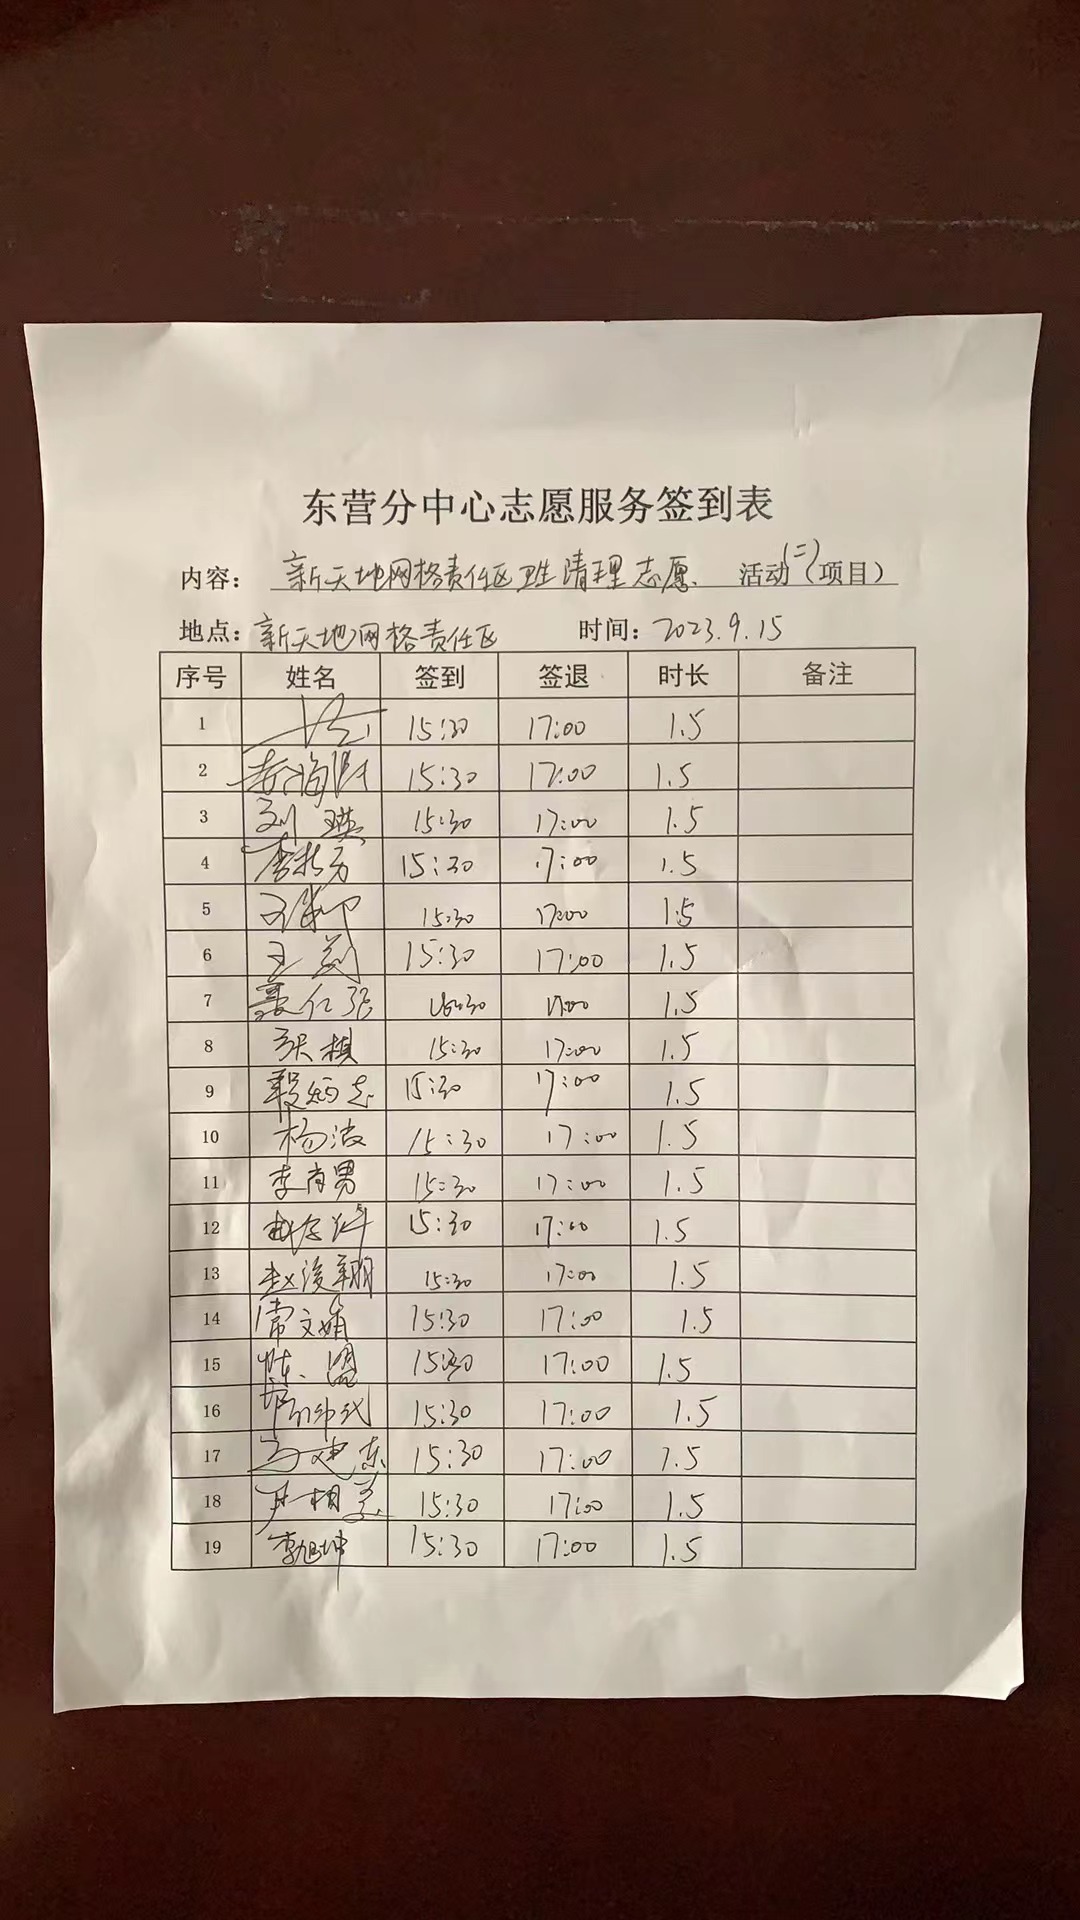 东营分中心志愿服务签到表
内容： 新天地网格责任区卫生清理志愿 活动(二)（项目）
地点：新天地网格责任区 时间：2023.9.15
序号 姓名 签到 签退 时长 备注
1 15:30 17:00 1.5
2 15:30 17:00 1.5
3 刘瑛 15:30 17:00 1.5
4 15:30 17:00 1.5
5 15:30 17:00 1.5
6 15:30 17:00 1.5
7 聂仁强 15:30 17:00 1.5
8 张桢 15:30 17:00 1.5
9 15:30 17:00 1.5
10 杨波 15:30 17:00 1.5
11 李肖男 15:30 17:00 1.5
12 15:30 17:00 1.5
13 赵俊翔 15:30 17:00 1.5
14 常文娟 15:30 17:00 1.5
15 15:30 17:00 1.5
16 15:30 17:00 1.5
17 马建东 15:30 17:00 1.5
18 15:30 17:00 1.5
19 李旭坤 15:30 17:00 1.5